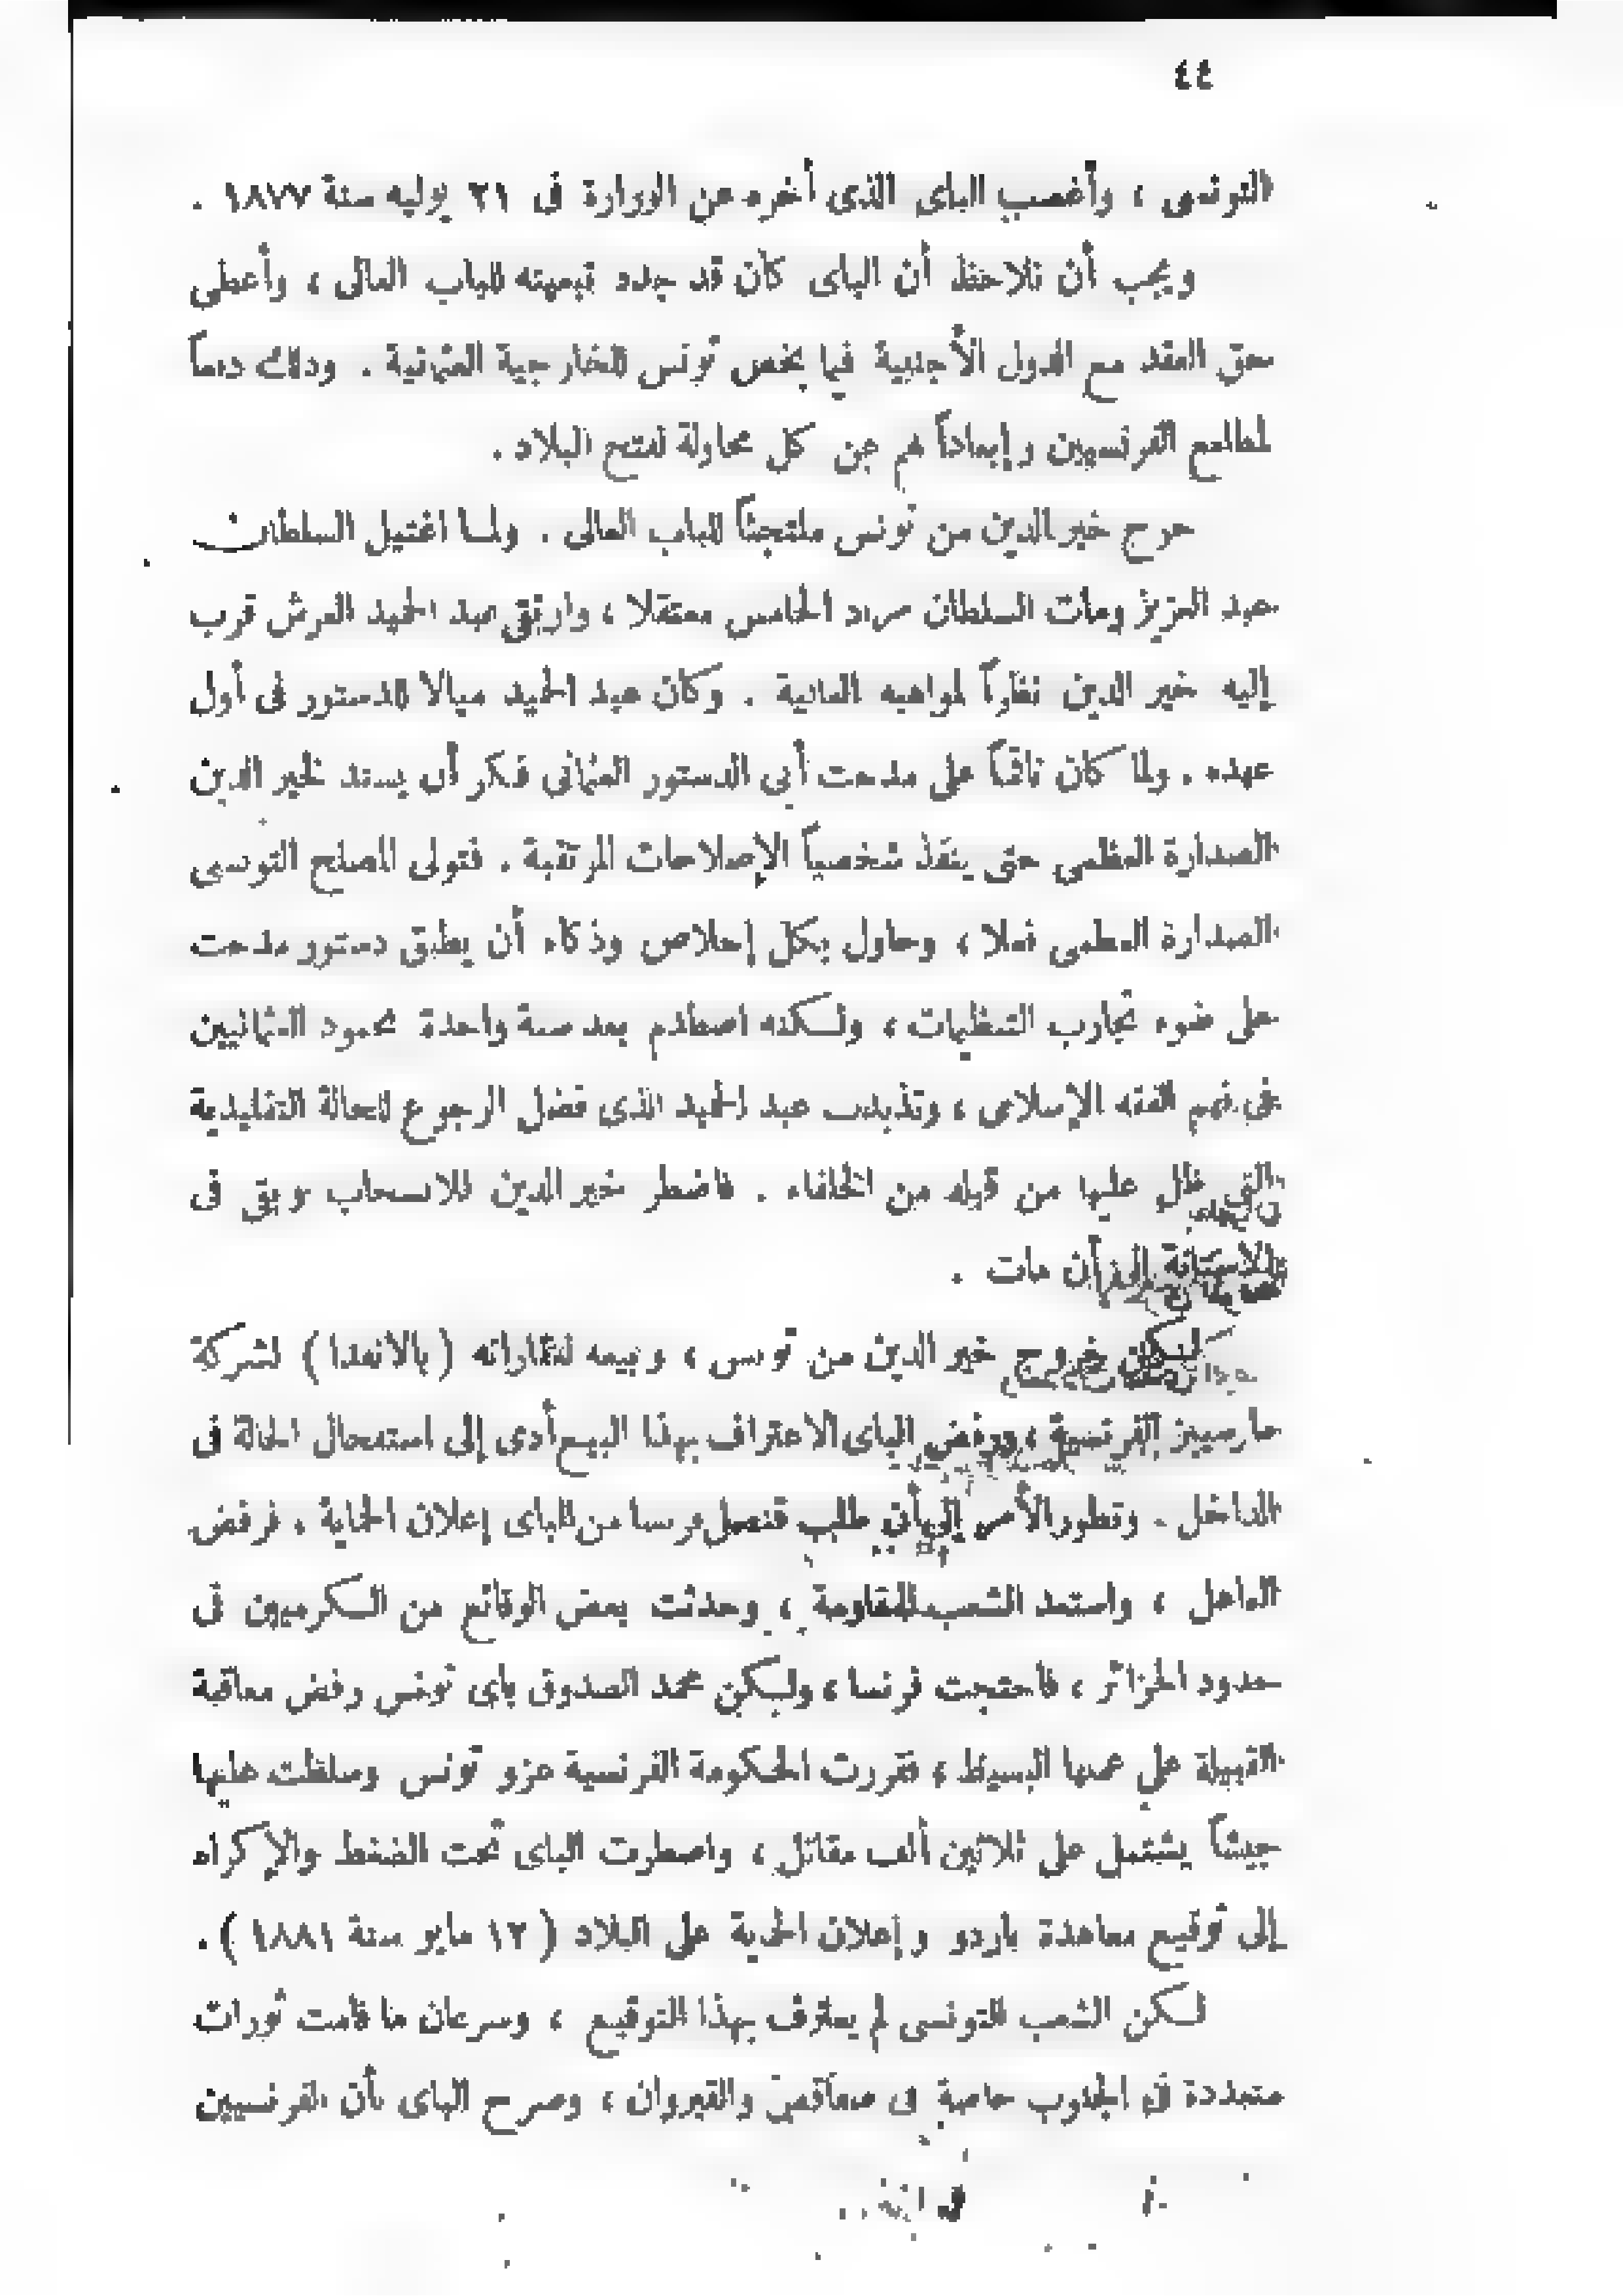 ٤٤
التونسى ، وأغضب الباى الذى أخرجه عن الوزارة فى ٢١ يوليه سنة ١٨٧٧ .
ويجب أن نلاحظ أن الباى كان قد جدد تبعيته للباب العالى ، وأعطى
حق العقد مع الدول الأجنبية فيما يخص تونس للخارجية العثمانية . وذلك دفعاً
لمطامع الفرنسيين وإبعاداً لهم عن كل محاولة لفتح البلاد .
خرج خير الدين من تونس ملتجئاً للباب العالى . ولمـا اغتيل السلطان
عبد العزيز ومات السلطان مراد الخامس معتقلا ، وارتقى عبد الحميد العرش قرب
إليه خير الدين نظراً لمواهبه العالية . وكان عبد الحميد ميالا للدستور فى أول
عهده . ولما كان ناقماً على مدحت أبى الدستور العثمانى فكر أن يسند لخير الدين
الصدارة العظمى حتى ينفذ شخصياً الإصلاحات المرتقبة . فتولى المصلح التونسى
الصدارة العظمى فعلا ، وحاول بكل إخلاص وذكاء أن يطبق دستور مدحت
على ضوء تجارب التنظيمات ، ولـكنه اصطدم بعد سنة واحدة بجمود العثمانيين
فى فهم الفقه الإسلامى ، وتذبذب عبد الحميد الذى فضل الرجوع للحالة التقليدية
التى ظل عليها من قبله من الخلفاء . فاضطر خير الدين للانسحاب وبقى فى
الاستانة إلى أن مات .
لـكن خروج خير الدين من تونس ، وبيعه لعقاراته ( بالانفدا ) لشركة
مارسييز الفرنسية ، ورفض الباى الاعتراف بهذا البيع أدى إلى استفحال الحالة فى
الداخل . وتطور الأمر إلى أن طلب قنصل فرنسا من الباى إعلان الحماية . فرفض
العاهل ، واستعد الشعب للمقاومة ، وحدثت بعض الوقائع من الـكرميين فى
حدود الجزائر ، فاحتجت فرنسا ، ولـكن محمد الصدوق باى تونس رفض معاقبة
القبيلة على عملها البسيط ، فقررت الحكومة الفرنسية غزو تونس وسلطت عليها
جيشاً يشتمل على ثلاثين ألف مقاتل ، واضطرت الباى تحت الضغط والإكراه
إلى توقيع معاهدة باردو وإعلان الحماية على البلاد ( ١٢ مايو سنة ١٨٨١ ) .
لـكن الشعب التونسى لم يعترف بهذا التوقيع ، وسرعان ما قامت ثورات
متعددة فى الجنوب خاصة فى صفاقس والقيروان ، وصرح الباى بأن الفرنسيين